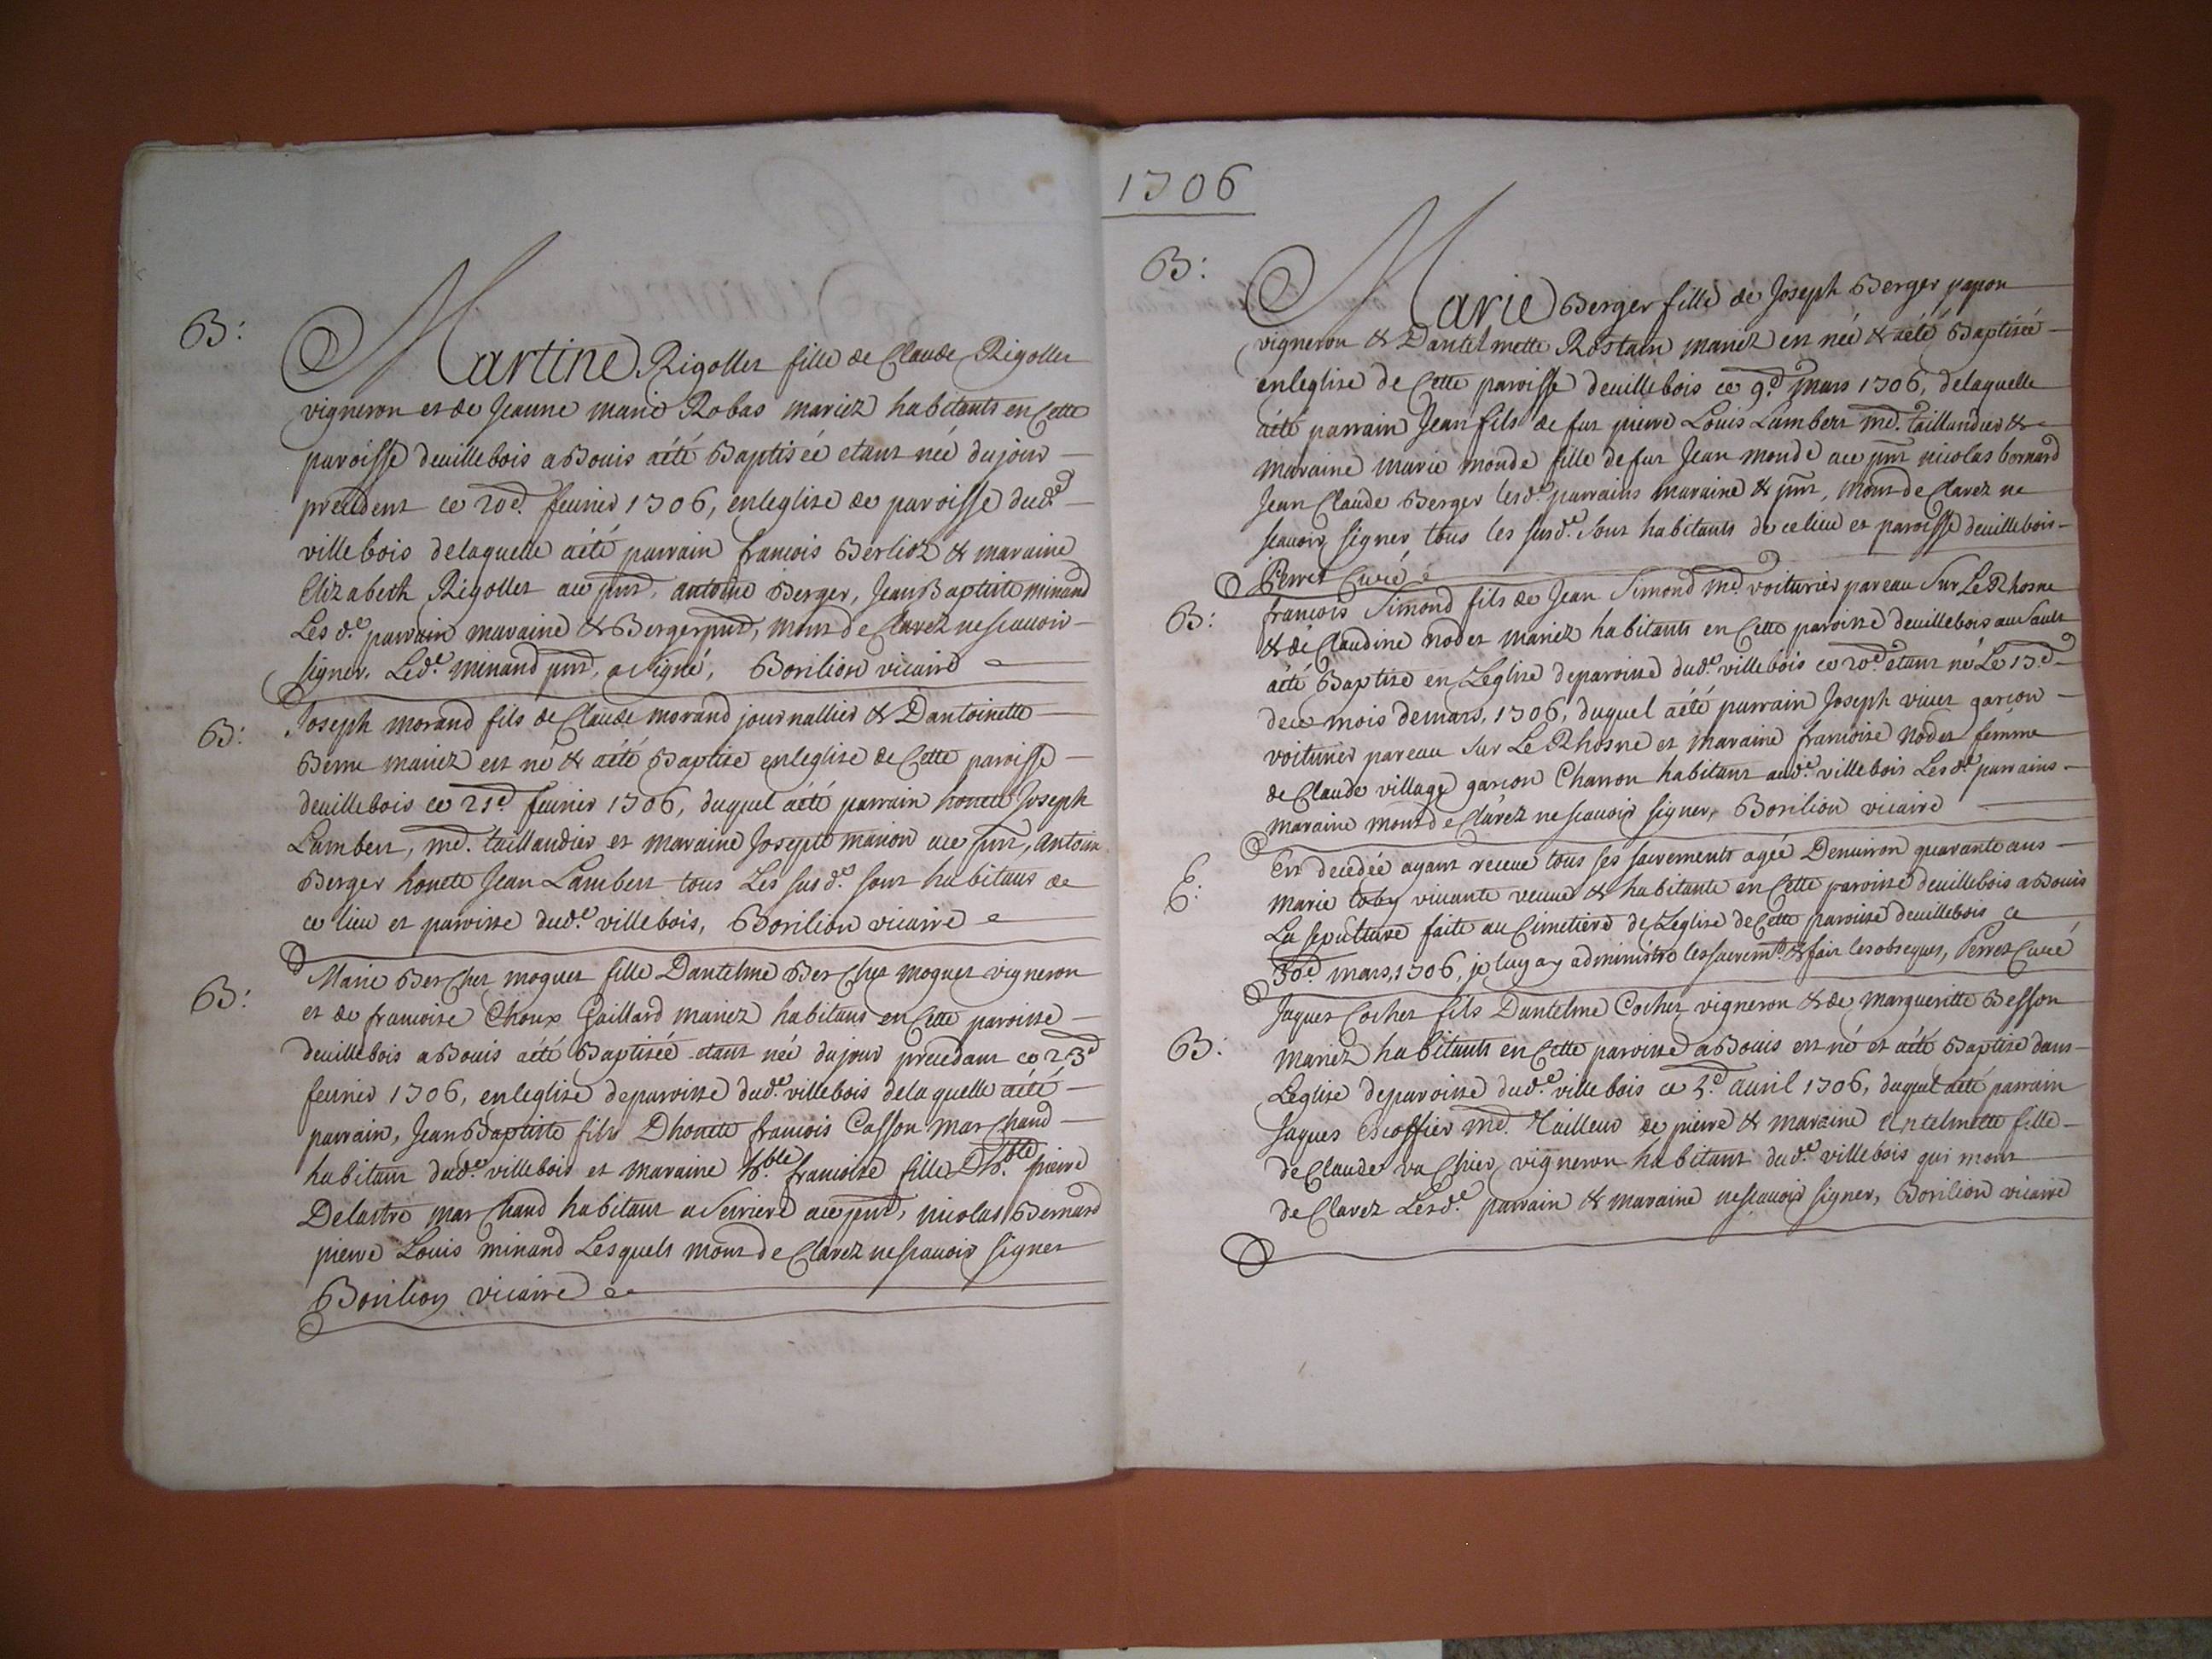 1706
B:
Martine Rigollet fille de Claude Rigollet
vigneron et de Jeanne marie Robas mariez habitants en Cette
paroisse deuillebois aBouis aété Baptiséé etant néé dujour
precedent ce 20d. feurier 1706, enleglise de paroisse dude
villebois delaquelle aété parrain francois Berlioz & maraine
Elizabeth Rigollet auec pnts. antoine Berger, JeanBaptiste minand
Les de. parrain maraine & Berger pnts, mont de Clarez nescauoir
signer, Lede. minand pnt, a signé, Borilion vicaire
B:
Joseph morand fils de Claude morand journallier & Dantoinette
Berne mariez est né & aété Baptise enleglise de Cette paroisse
deuillebois ce 21d feurier 1706, duquel aété parrain honete Joseph
Lambert, md. taillandier et maraine Josepte marion auec pnts, Antoine
Berger honete Jean Lambert tous Les susde. sont habitans de
ce lieu et paroisse dude villebois, Borilion vicaire
B:
Marie Berchet moguet fille Dantelme Berchet moguet vigneron
et de francoise Choux Gaillard mariez habitans en Cette paroisse
deuillebois aBouis aété Baptiséé etant néé dujour precedant ce 23d
feurier 1706, enleglise deparoisse dude. villebois delaquelle aété
parrain, JeanBaptiste fils Dhonete francois Casson marchand
habitant dude villebois et maraine hble. francoise fille Dhble. pierre
Delastre marchand habitant a Serriere auec pnts, nicolas Bernard
pierre Louis minand Lesquels mont de Clarez nescauoir signer
Borilion vicaire
B:
Marie Berger fille de Joseph Berger papon
vigneron & Dantelmette Rostain mariez est néé & aété Baptiséé
enleglise de Cette paroisse deuillebois ce 9d mars 1706, delaquelle
aété parrain Jean fils de fut pierre Louis Lambert md. taillandier &
maraine marie monde fille defut Jean monde auec pnts nicolas bernard
Jean Claude Berger lesde. parrains maraine & pnts, mont de Clarez ne
scauoir signer tous les susde. sont habitants de ce lieu et paroisse deuillebois
Perret Curé
B:
francois Simond fils de Jean Simond md voiturier pareau sur Le Rhosne
& de Claudine nodet mariez habitants en Cette paroisse deuillebois au Sault
aété Baptise en Leglise deparoisse dude villebois ce 20d etant né Le 17d
dece mois demars, 1706, duquel aété parrain Joseph viuet garcon
voiturier pareau sur Le Rhosne et maraine francoise nodet femme
de Claude village garcon Charron habitant aude villebois Lesde parrains
maraine mont de Clarez nescauoir signer, Borilion vicaire
E:
Est decedéé ayant receue tous ses sacrements agéé Denuiron quarante ans
marie toby viuante veuue & habitante en Cette paroisse deuillebois aBouis
La sepulture faite au Cimetiere de Leglise deCette paroisse deuillebois ce
30d mars, 1706, je luy ay administre les sacremts & fait les obseques, Perret Curé
B:
Jaques Cochet fils Dantelme Cochet vigneron & de margueritte Besson
mariez habitants en Cette paroisse aBouis est né et aété Baptise dans
Leglise deparoisse dude. villebois ce 5d. auril 1706, duquel aété parrain
Jaques escoffier md. tailleur de pierre & maraine Antelmette fille
de Claude vachier vigneron habitant dude. villebois qui mont
de Clarez Lesde. parrain & maraine nescauoir signer, Borilion vicaire